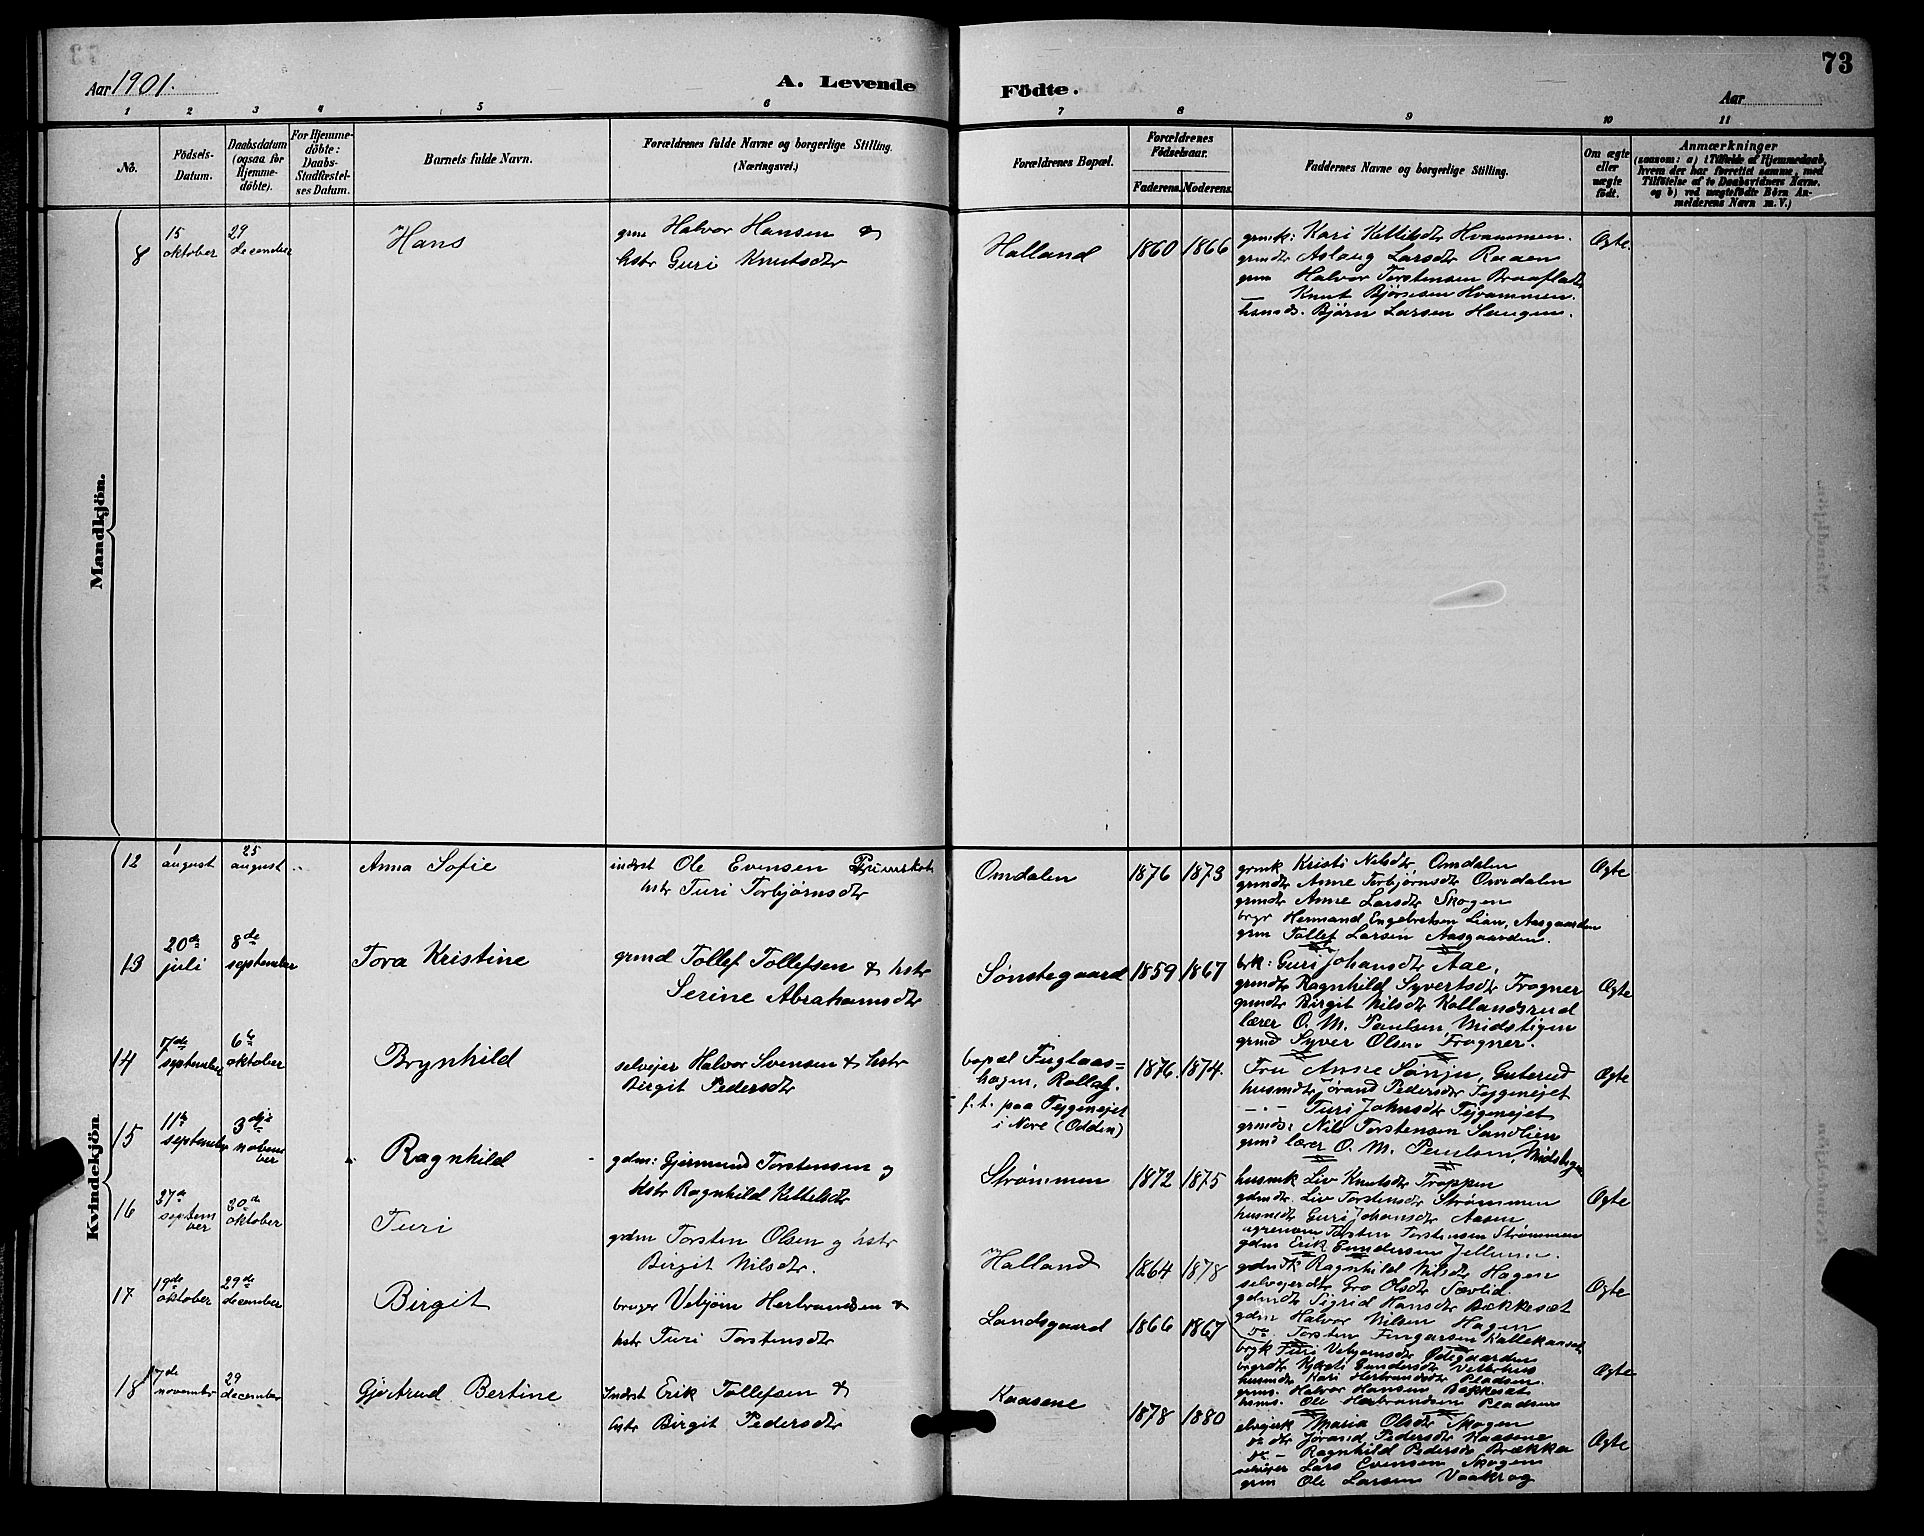 73
Aar 1901.
A. Levende
Födte.
Aar
1 2 3 4 5 6 7 8 9 10 11
No.
Födsels-Datum.
Daabsdatum (ogsaa for Hjemme-döbte).
For Hjemme-döbte: Daabs-Stadfæstel-ses Datum.
Barnets fulde Navn.
Forældrenes fulde Navne og borgerlige Stilling. (Næringsvei.)
Forældrenes Bopæl.
Forældrenes Födselsaar.
Faderens. Moderens.
Faddernes Navne og borgerlige Stilling.
Om ægte eller uægte födt.
Anmærkninger
(saasom: a) i Tilfælde af Hjemmedaab,
hvem der har forrettet samme, med
Tilföielse af to Daabsvidners Navne,
og b) ved uægtefödte Börn An-
melderens Navn m. V.)
Mandkjön.
8
15 oktober
29 desember
Hans
grm Halvor Hansen &
hstr Guri Knutsdtr
Halland
1860 1866
grmk: Kari Kittilsdtr Hvammen.
grmdtr Aslaug Larsdtr Raaen
grm Halvor Torstensen Braafladt
— Knut Bjørnsen Hvammen.
Bjørn Larsen Haugen.
Ægte.
Kvindekjön
12
1 august
25 august
Anna Sofie
inderst Ole Evensen
hstr Turi Torbjørnsdtr
Omdalen
1876 1873
grmk Kristi Nilsdtr Omdalen
grmdtr Anne Torbjørnsdtr Omdalen
grmdtr Anne Larsdtr Skogen
bygr Hermand Engebretsen Lian, Aasgaarden
grm Tollef Larsen Aasgaarden.
Ægte
13
20de juli
8de september
Tora Kristine
grmd Tollef Tollefsen & hstr
Serine Abrahamsdtr
Sønstegaard
1859 1867
brk: Guri Johansdtr Aae,
grmdtr Ragnhild Syvertsdtr Frogner
grmdtr Birgit Nilsdtr Kollandsrud
lærer O. M. Paulsen, Midstigen
grmd Syver Olsen Frogner.
Ægte
14
7de september
6te oktober
Brynhild
selveier Halvor Svensen & hstr
Birgit Pedersdtr
bopæl Fuglaas-
hagen, Rollag.
f. t. paa Tegeneiet
i Nore (Odden)
1876. 1874.
Fru Anne Sønju, Guterud
husmdtr Jørand Pedersdtr Teigeneiet
— Turi Johnsdtr Teigeneiet
grmds: Nils Torstensen Sandlien
lærer O. M. Paulsen, Midstigen
Ægte
15
11te september
3die november
Ragnhild
gdm: Gjermund Torstensen og
hstr Ragnhild Kittelsdtr
Strømmen
1872 1875
husmk Liv Knutsdtr Trappen
gdmdtr. Liv Torstensdtr Strømmen
husmdtr Guri Johansdtr Aasen
agronom Torsten Torstensen Strømmen
gdm Erik Gundersen
Ægte
16
27de september
20de oktober
Turi
gdm Torsten Olsen og hstr
Birgit Nilsdtr.
Halland
1864 1878
gdmk Ragnhild Nilsdtr Hagen
selveierdtr Gro Olsdtr Sævlid
gdmdtr Sigrid Hansdtr Bækkesæt
gdm Halvor Nilsen Hagen
do. Torsten Fingarsen
Ægte
17
19de oktober
29de december
Birgit
bruger Vebjørn Herbrandsen &
hstr Turi Torstensdtr
Landsgaard
1866 1867
brgk Turi Vebjørnsdtr Ødegaarden
brgrdtr Kjersti Gundersdtr Vetterhus
husmdtr Kari Herbrandsdtr Pladsen.
grms. Halvor Hansen Bækkesæt
hsms. Ole Herbrandsen Pladsen
Ægte
18
17de november
29 december
Gjertrud Bertine
Inderst Erik Tollefsen &
hstr Birgit Pedersdtr
Kaasene
1878 1880
Maria Olsdtr Skogen
do dtr Jørand Pedersdtr Kaasene
do — Ragnhild Pedersdtr Brække
selveier Lars Evensen Skogen
grm Ole Larsen Vaakrog
Ægte